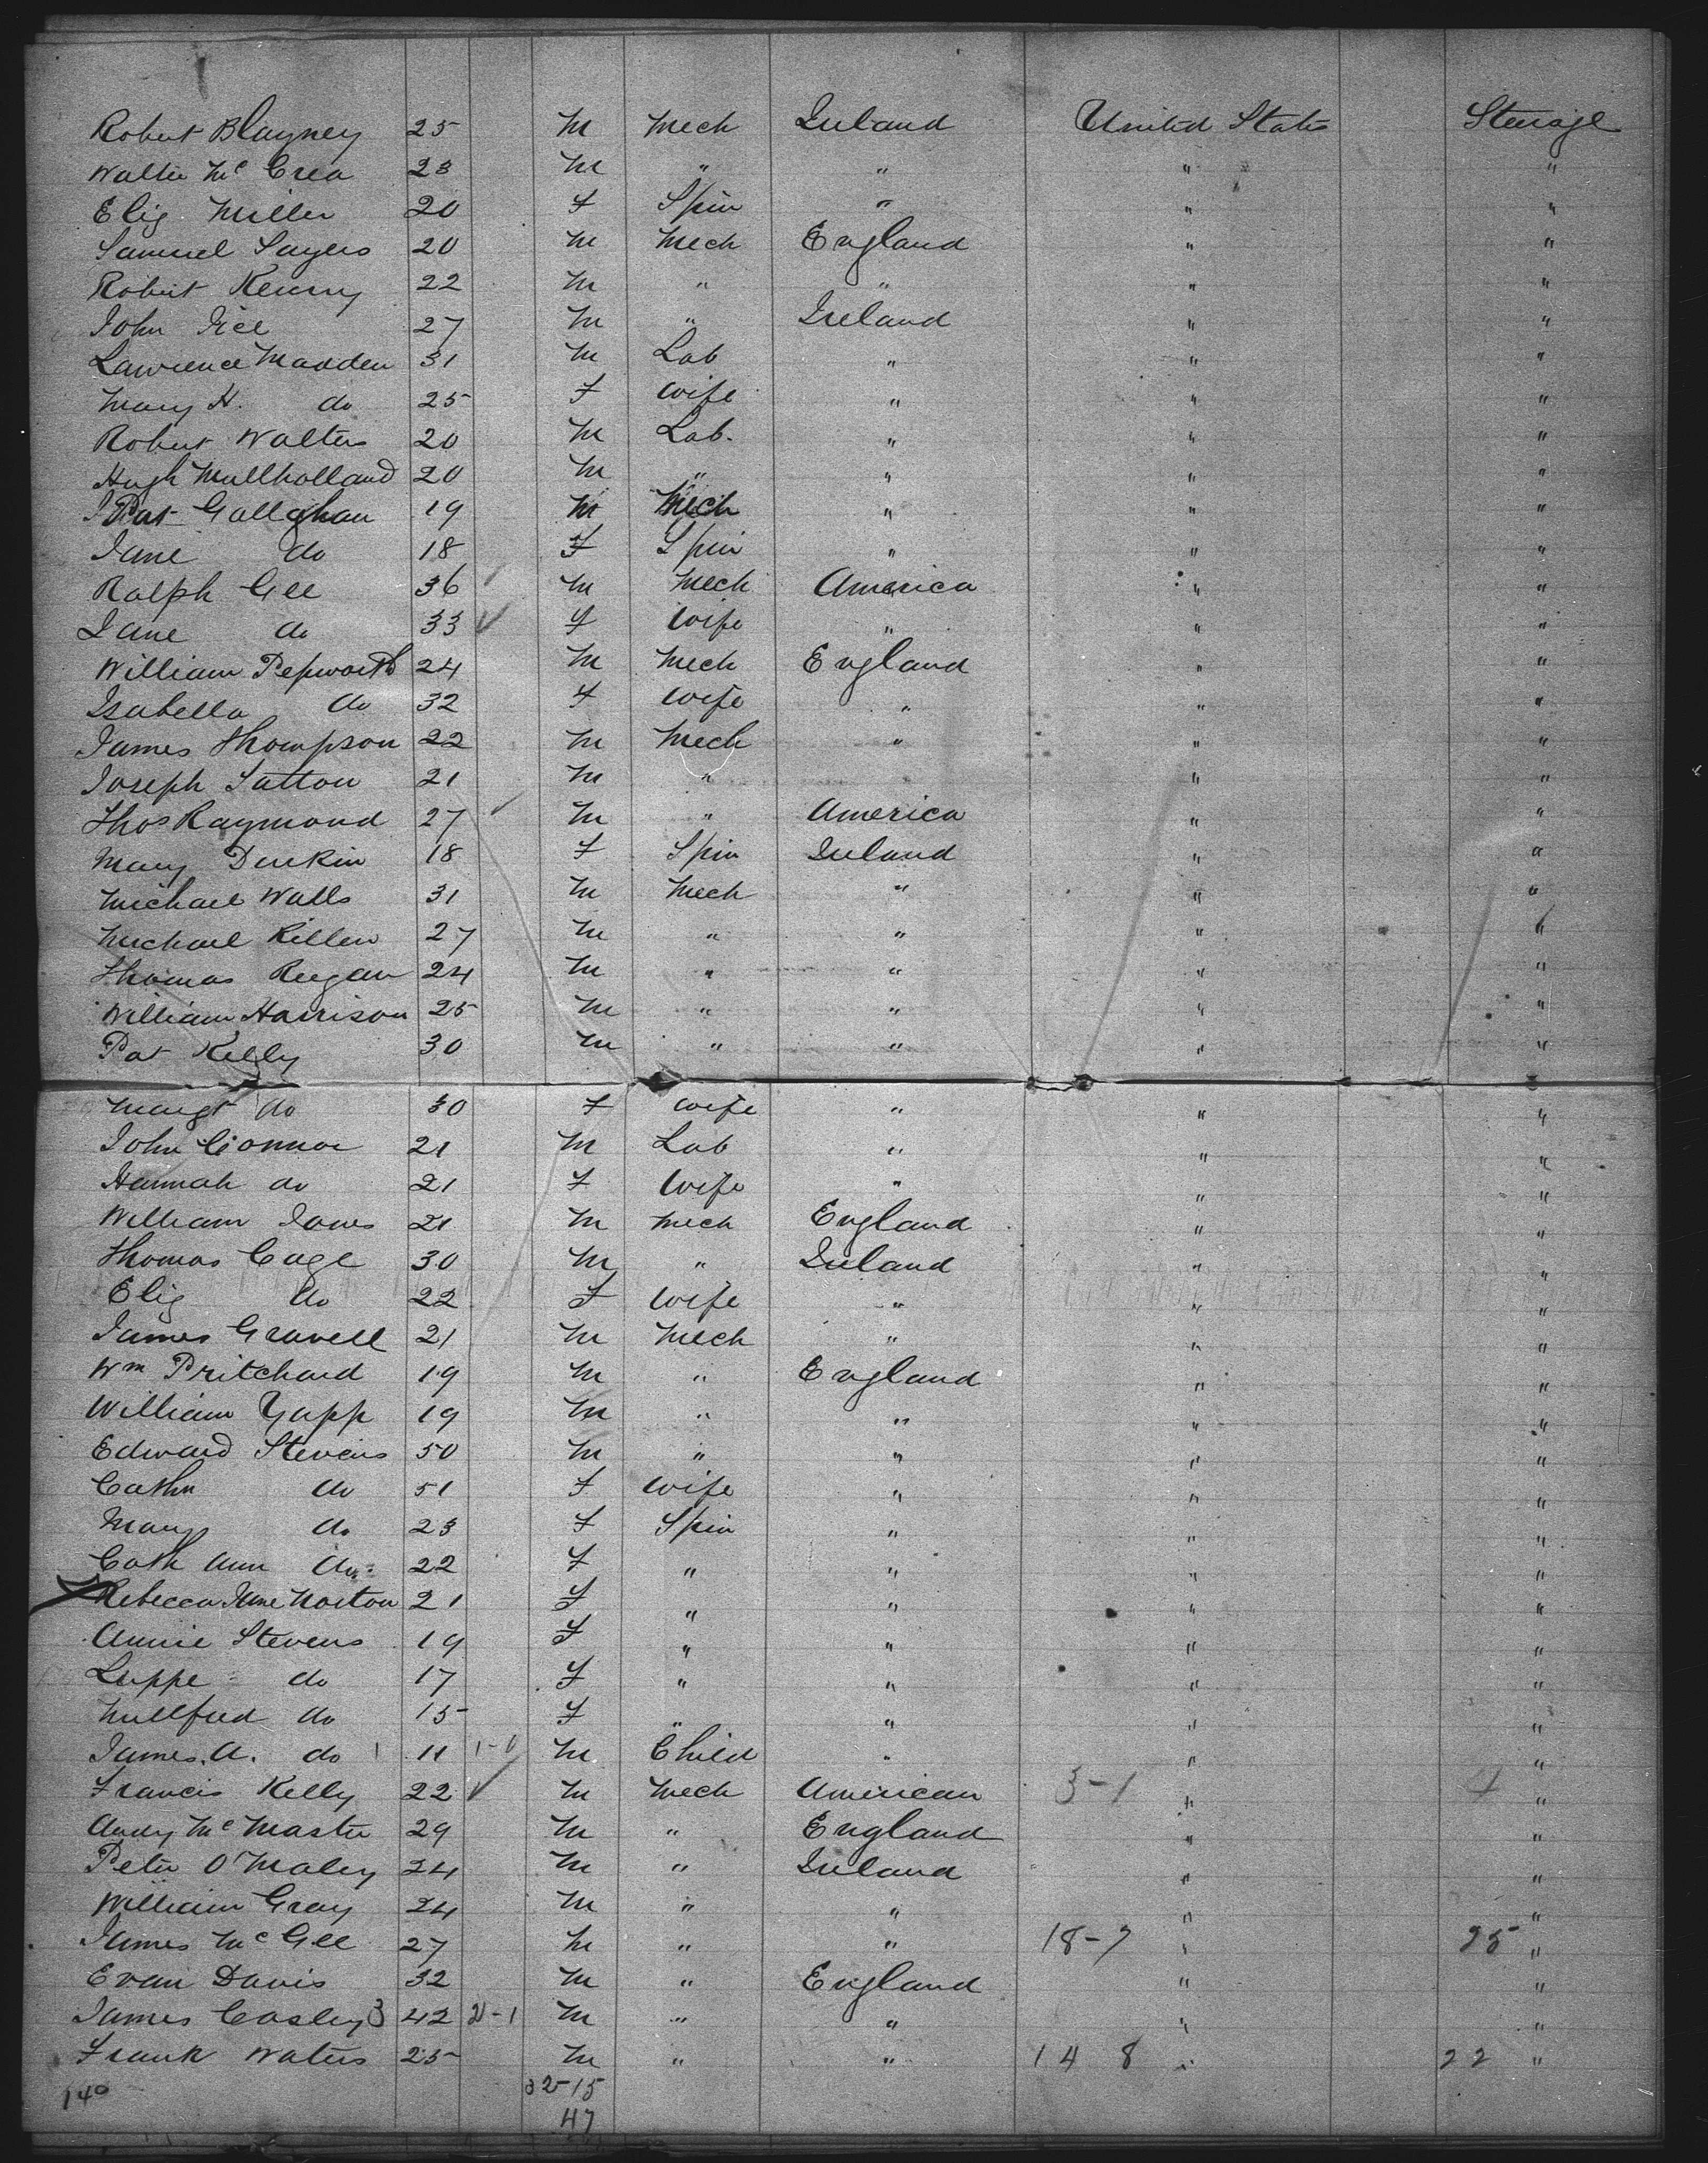 Robert Blayney 25 M Mech Ireland United States Steerage
Walter Mc Crea 23 M " " " "
Eliz Miller 20 F Spin " " "
Samuel Sayers 20 M Mech England " "
Robert Kenny 22 M " " " "
John 27 M " Ireland " "
Lawrence Madden 31 M Lab " " "
Mary H. do 25 F Wife " " "
Robert Walters 20 M Lab. " " "
Hugh Mullholland 20 M " " " "
Pat Gallaghan 19 M Mech " " "
Jane do 18 F Spin " " "
Ralph Gee 36 M Mech America " "
Jane do 33 F Wife " " "
William Pepworth 24 M Mech England " "
Isabella do 32 F Wife " " "
James Thompson 22 M Mech " " "
Joseph Sutton 21 M " " " "
Thos Raymond 27 M " America " "
Mary Durkin 18 F Spin Ireland " "
Michael Walls 31 M Mech " " "
Michael Killen 27 M " " " "
Thomas Regan 24 M " " " "
William Harrison 25 M " " " "
Pat Kelly 30 M " " " "
Margt do 30 F Wife " " "
John Connor 21 M Lab " " "
Hannah do 21 F Wife " " "
William Jones 21 M Mech England " "
Thomas Cage 30 M " Ireland " "
Eliz do 22 F Wife " " "
James Gravell 21 M Mech " " "
Wm Pritchard 19 M " England " "
William Yapp 19 M " " " "
Edward Stevens 50 M " " " "
Cathn do 51 F Wife " " "
Mary do 23 F Spin " " "
Cath Ann do 22 F " " " "
Rebecca Jane Norton 21 F " " " "
Annie Stevens 19 F " " " "
Luppe do 17 F " " " "
Millfred do 15 F " " " "
James. A. do 11 1-0 M Child " " "
Francis Kelly 22 M Mech American 3-1 " 4 "
Andy Mc Master 29 M " England " "
Peter O'Maley 24 M " Ireland " "
William Gray 24 M " " " "
James Mc Gee 27 M " " 18-7 " 25 "
Evan Davis 32 M " England " "
James Casley 3 42 2-1 M " " " "
Frank Waters 25 M " " 14 8 " 22 "
140 32-15
47